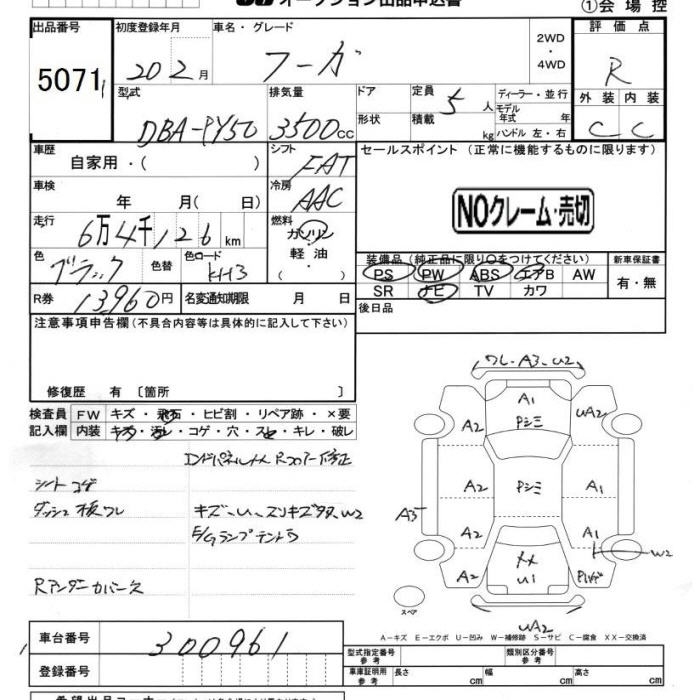 オークション出品申込書 ①会場控
出品番号 初度登録年月 車名・グレード 2WD・4WD 評価点
5071 20 2月 フーガ R
型式 排気量 ドア 定員 5人 ディーラー・並行 外装 内装
DBA-PY50 3500cc 形状 積載 kg モデル年式 年 ハンドル 左・右 C C
車歴 自家用・( ) シフト FAT セールスポイント (正常に機能するものに限ります)
車検 年 月( 日) 冷房 AAC
NOクレーム・売切
走行 6万4千126km 燃料 ガソリン 軽油 ・( )
色 ブラック 色替 色ロード KH3
装備品 (純正品に限り○をつけてください) 新車保証書
PS PW ABS エアB AW 有・無
SR ナビ TV カワ
R券 13960円 名変通知期限 月 日 後日品
注意事項申告欄(不具合内容等は具体的に記入して下さい)
修復歴 有 〔箇所 〕
検査員 FW キズ・飛石・ヒビ割・リペア跡・×要
記入欄 内装 キズ・汚レ・コゲ・穴・スレ・キレ・破レ
シート コゲ
キズ-U-スリキズタタ W2
E/Gランプテントウ
Rアンダーカバー欠
ワレ-A3-U2
A1
Pシミ
A2 UA2
A2 Pシミ A1
A35
A2 A1
W2
A2 U1
スペア
UA2
A-キズ E-エクボ U-凹み W-補修跡 S-サビ C-腐食 XX-交換済
車台番号 300961
登録番号
型式指定番号 参考 類別区分番号 参考
車庫証明用 参考 長さ cm 幅 cm 高さ cm